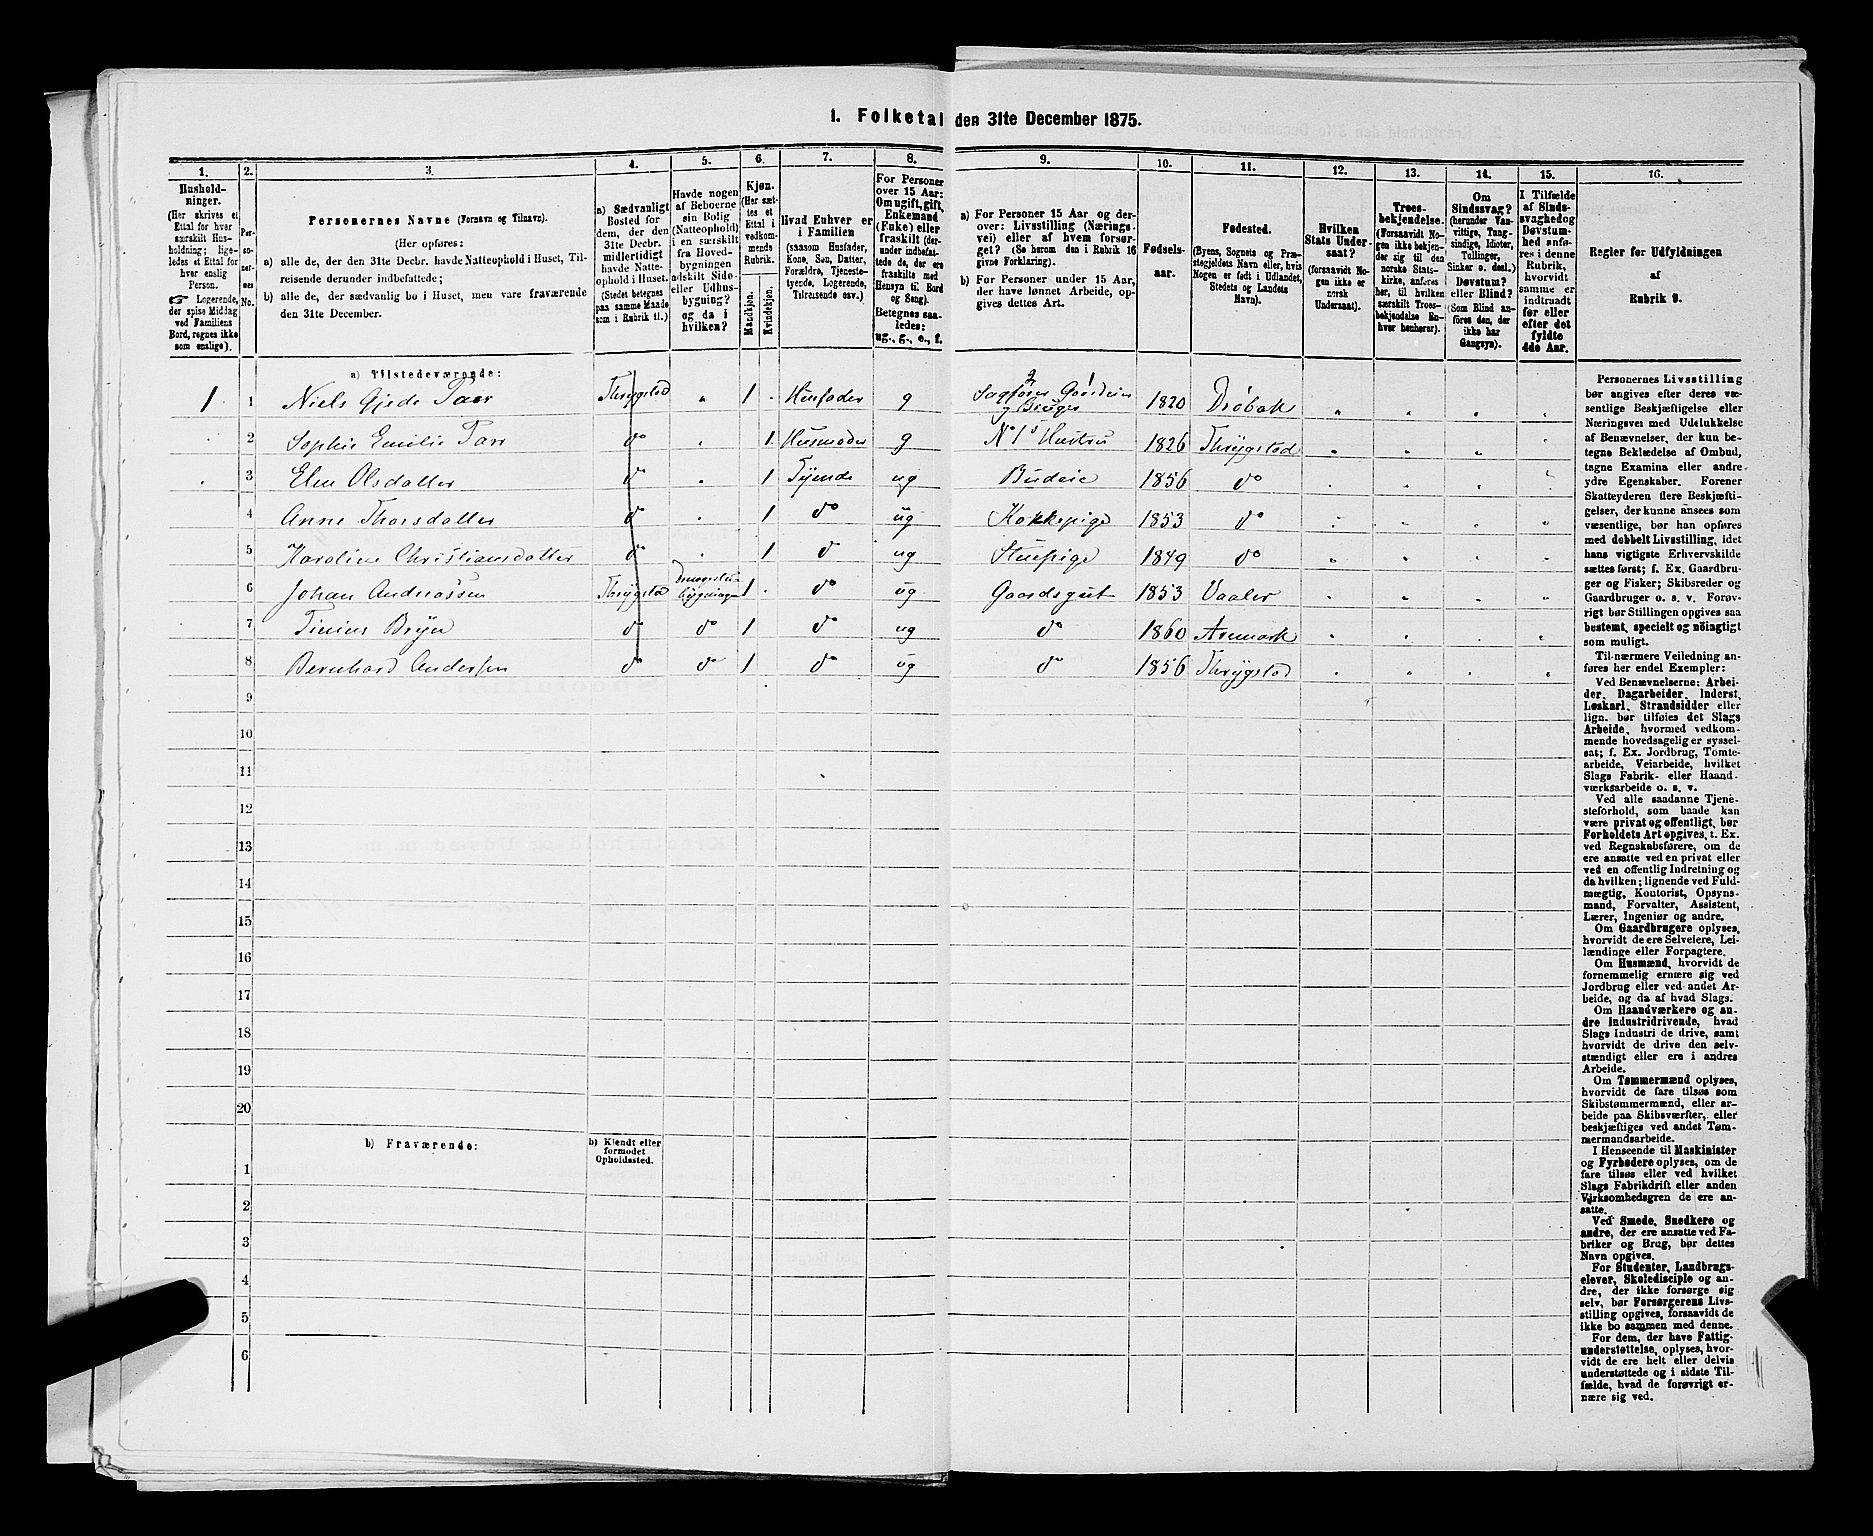 1. Folketal den 31te December 1875.
1. 2. 3. 4. 5. 6. 7. 8. 9. 10. 11. 12. 13. 14. 15. 16.
Hushold-
ninger.
(Her skrives et
Ettal for hver
særskilt Hus-
holdning; lige-
ledes et Ettal for
hver enslig
Person.
☞ Logerende,
der spise Middag
ved Familiens
Bord, regnes ikke
som enslige).
Per-
so-
ner-
nes
No.
Personernes Navne (Fornavn og Tilnavn).
(Her opføres:
a) alle de, der den 31te Decbr. havde Natteophold i Huset, Til-
reisende derunder indbefattede;
b) alle de, der sædvanlig bo i Huset, men vare fraværende
den 31te December.
a) Sædvanligt
Bosted for
dem, der den
31te Decbr.
midlertidigt
havde Natte-
ophold i Huset.
(Stedet betegnes
paa samme Maade
som i Rubrik 11.)
Havde nogen
af Beboerne
sin Bolig
(Natteophold)
i en særskilt
fra Hoved-
bygningen
adskilt Side-
eller Udhus-
bygning?
og da i
hvilken?
Kjøn.
(Her sæt-
tes et
Ettal i
vedkom-
mende
Rubrik.
Mandkjøn.
Kvindekjøn.
Hvad Enhver er
i Familien
(saasom Husfader,
Kone, Søn, Datter,
Forældre, Tjeneste-
tyende, Logerende,
Tilreisende osv.)
For Personer
over 15 Aar:
Om ugift, gift,
Enkemand
(Enke) eller
fraskilt (der-
under indbefat-
tede de, der ere
fraskilte med
Hensyn til Bord
og Seng).
Betegnes saa-
ledes:
ug., g., e., f.
a) For Personer 15 Aar og der-
over: Livsstilling (Nærings-
vei) eller af hvem forsør-
get? (Se herom den i Rubrik 16
givne Forklaring).
b) For Personer under 15 Aar,
der have lønnet Arbeide, op-
gives dettes Art.
Fødsels-
aar.
Fødested.
(Byens, Sognets og Præ-
stegjeldets Navn eller, hvis
Nogen er født i Udlandet,
Stedets og Landets
Navn).
Hvilken
Stats Under-
saat?
(forsaavidt No-
gen ikke er
norsk
Undersaat).
Troes-
bekjendelse.
(Forsaavidt No-
gen ikke bekjen-
der sig til den
norske Stats-
kirke, anføres
her, til hvilken
særskilt Troes-
bekjendelse En-
hver henhører).
Om
Sindssvag?
(herunder Van-
vittige, Tung-
sindige, Idioter,
Tullinger,
Sinker o. desl.)
Døvstum?
eller Blind?
(Som Blind an-
føres den, der
ikke har
Gangsyn).
I Tilfælde
af Sinds-
svaghed og
Døvstum-
hed anfø-
res i denne
Rubrik,
hvorvidt
samme er
indtraadt
før eller
efter det
fyldte
4de Aar.
Regler for Udfyldningen
af
Rubrik 9.
a) Tilstedeværende:
1 1 Niels Gjede Tarr Thrygstad 1 Husfader g Sagfører Gaardeier 1820 Drøbak
og Bruger
2 Sophie Emilie Tarr do 1 Husmoder g No 1s Hustru 1826 Thrygstad
3 Elen Olsdatter do 1 Tyende ug Budeie 1856 do
4 Anne Thorsdatter do 1 do ug Kokkepige 1853 do
5 Karoline Christiansdatter do 1 do ug Stuepige 1849 do
6 Johan Andreassen Thrygstad 1 do ug Gaardsgut 1853 Vaaler
7 Tinius Bryn do do 1 do ug do 1860 Aremark
8 Bernhard Andersen do do 1 do ug do 1856 Thrygstad
9
10
11
12
13
14
15
16
17
18
19
20
b) Fraværende:
b) Kjendt eller
formodet
Opholdssted.
1
2
3
4
5
6
Personernes Livsstilling
bør angives efter deres væ-
sentlige Beskjæftigelse eller
Næringsvei med Udelukkelse
af Benævnelser, der kun be-
tegne Beklædelse af Ombud,
tagne Examina eller andre
ydre Egenskaber. Forener
Skatteyderen flere Beskjæfti-
gelser, der kunne ansees som
væsentlige, bør han opføres
med dobbelt Livsstilling, idet
hans vigtigste Erhvervskilde
sættes først; f. Ex. Gaardbru-
ger og Fisker; Skibsreder og
Gaardbruger o. s. v. Forøv-
rigt bør Stillingen opgives saa
bestemt, specielt og nöiagtigt
som muligt.
Til nærmere Veiledning an-
føres her endel Exempler:
Ved Benævnelserne: Arbei-
der, Dagarbeider, Inderst,
Løskarl, Strandsidder eller
lign. bør tilføies det Slags
Arbeide, hvormed vedkom-
mende hovedsagelig er syssel-
sat; f. Ex. Jordbrug, Tomte-
arbeide, Veiarbeide, hvilket
Slags Fabrik- eller Haand-
værksarbeide o. s. v.
Ved alle saadanne Tjene-
steforhold, som baade kan
være privat og offentligt, bør
Forholdets Art opgives, t. Ex.
ved Regnskabsførere, om de
ere ansatte ved en privat eller
ved en offentlig Indretning og
da hvilken; lignende ved Fuld-
mægtig, Kontorist, Opsyns-
mand, Forvalter, Assistent,
Lærer, Ingeniør og andre.
Om Gaardbrugere oplyses,
hvorvidt de ere Selveiere, Lei-
lændinge eller Forpagtere.
Om Husmænd, hvorvidt de
fornemmelig ernære sig ved
Jordbrug eller ved andet Ar-
beide, og da af hvad Slags.
Om Haandværkere og an-
dre Industridrivende, hvad
Slags Industri de drive, samt
hvorvidt de drive den selv-
stændigt eller ere i andres
Arbeide.
Om Tømmermænd oplyses,
hvorvidt de fare tilsøs som
Skibstømmermænd, eller ar-
beide paa Skibsværfter, eller
beskjæftiges ved andet Tøm-
mermandsarbeide.
I Henseende til Maskinister
og Fyrbødere oplyses, om de
fare tilsøs eller ved hvilket
Slags Fabrikdrift eller anden
Virksomhedsgren de ere an-
satte.
Ved Smede, Snedkere og
andre, der ere ansatte ved Fa-
briker og Brug, bør dettes
Navn opgives.
For Studenter, Landbrugs-
elever, Skoledisciple og an-
dre, der ikke forsørge sig
selv, bør Forsørgerens Livs-
stilling opgives, forsaavidt de
ikke bo sammen med denne.
For dem, der have Fattig-
understøttelse, oplyses, hvor-
vidt de ere helt eller delvis
understøttede og i sidste Til-
fælde, hvad de forøvrigt er-
nære sig ved.